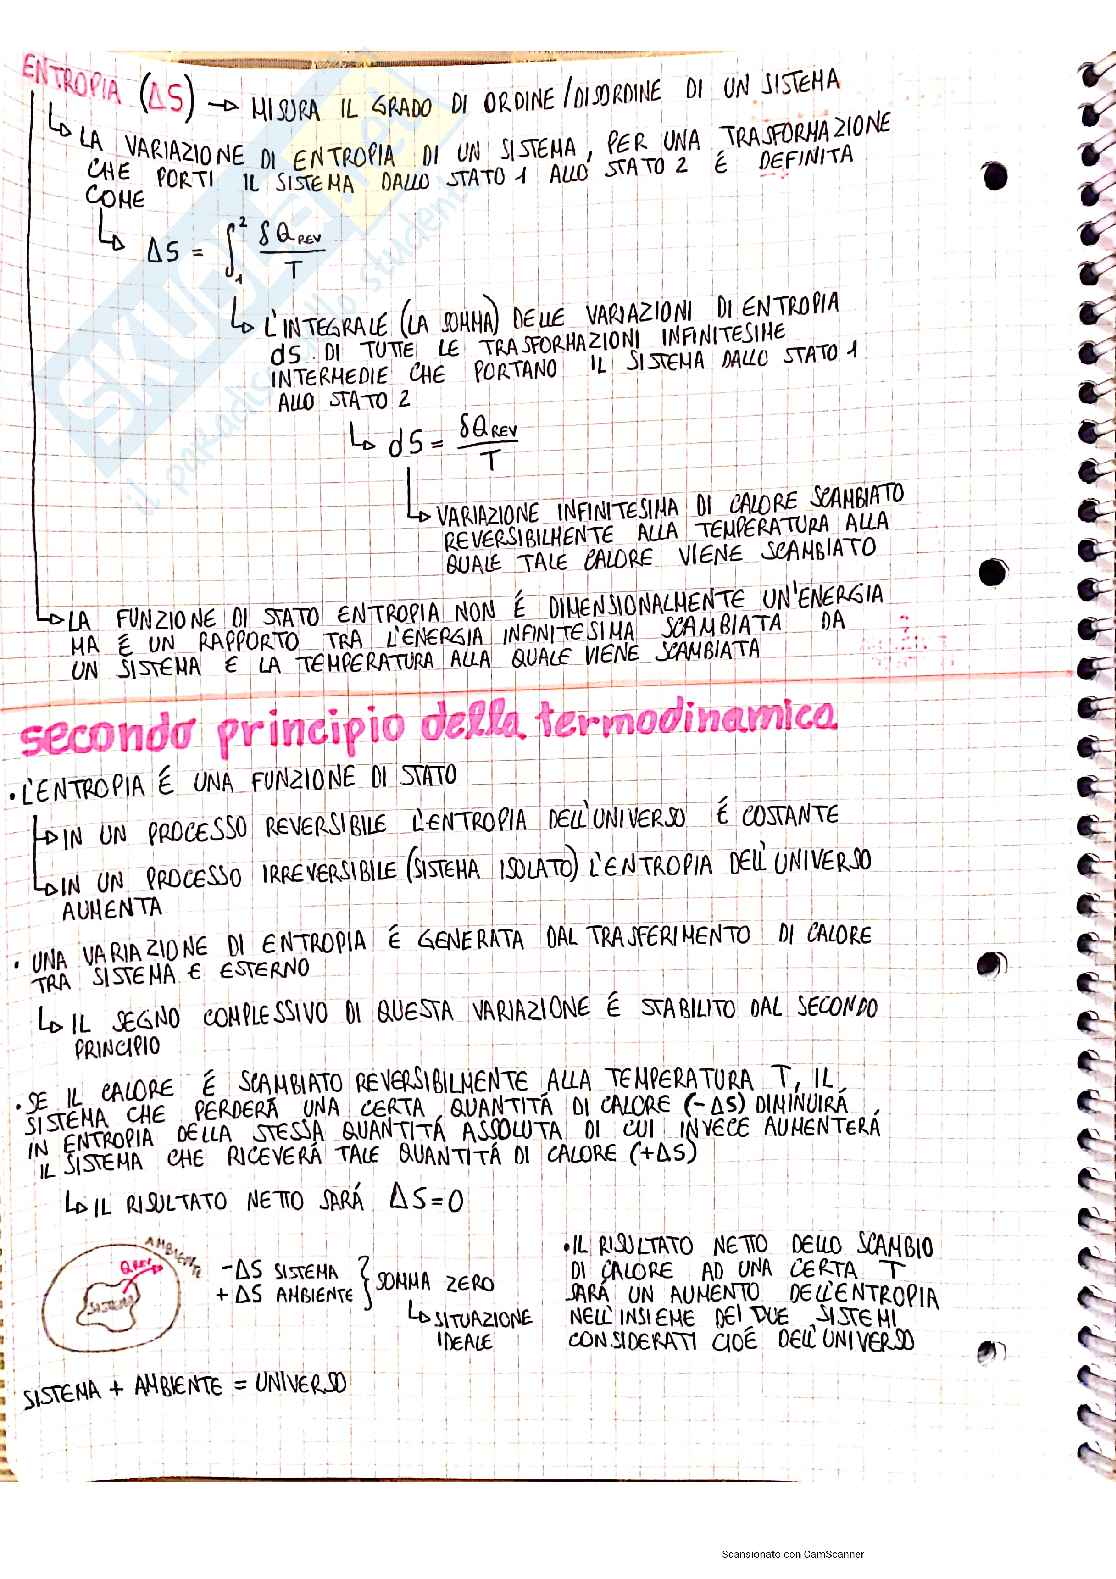 ENTROPIA (ΔS) → MISURA IL GRADO DI ORDINE/DISORDINE DI UN SISTEMA
↳ LA VARIAZIONE DI ENTROPIA DI UN SISTEMA, PER UNA TRASFORMAZIONE
CHE PORTI IL SISTEMA DALLO STATO 1 ALLO STATO 2 É DEFINITA
COME
↳ ΔS = ∫₁² δQREV / T
↳ L'INTEGRALE (LA SOMMA) DELLE VARIAZIONI DI ENTROPIA
dS DI TUTTE LE TRASFORMAZIONI INFINITESIME
INTERMEDIE CHE PORTANO IL SISTEMA DALLO STATO 1
ALLO STATO 2
↳ dS = δQREV / T
↳ VARIAZIONE INFINITESIMA DI CALORE SCAMBIATO
REVERSIBILMENTE ALLA TEMPERATURA ALLA
QUALE TALE CALORE VIENE SCAMBIATO
↳ LA FUNZIONE DI STATO ENTROPIA NON É DIMENSIONALMENTE UN'ENERGIA
MA É UN RAPPORTO TRA L'ENERGIA INFINITESIMA SCAMBIATA DA
UN SISTEMA E LA TEMPERATURA ALLA QUALE VIENE SCAMBIATA
secondo principio della termodinamica
• L'ENTROPIA É UNA FUNZIONE DI STATO
↳ IN UN PROCESSO REVERSIBILE L'ENTROPIA DELL'UNIVERSO É COSTANTE
↳ IN UN PROCESSO IRREVERSIBILE (SISTEMA ISOLATO) L'ENTROPIA DELL'UNIVERSO
AUMENTA
• UNA VARIAZIONE DI ENTROPIA É GENERATA DAL TRASFERIMENTO DI CALORE
TRA SISTEMA E ESTERNO
↳ IL SEGNO COMPLESSIVO DI QUESTA VARIAZIONE É STABILITO DAL SECONDO
PRINCIPIO
• SE IL CALORE É SCAMBIATO REVERSIBILMENTE ALLA TEMPERATURA T, IL
SISTEMA CHE PERDERÁ UNA CERTA QUANTITÁ DI CALORE (-ΔS) DIMINUIRÁ
IN ENTROPIA DELLA STESSA QUANTITÁ ASSOLUTA DI CUI INVECE AUMENTERÁ
IL SISTEMA CHE RICEVERÁ TALE QUANTITÁ DI CALORE (+ΔS)
↳ IL RISULTATO NETTO SARÁ ΔS=0
AMBIENTE
QREV
SISTEMA
-ΔS SISTEMA
+ΔS AMBIENTE } SOMMA ZERO
↳ SITUAZIONE
IDEALE
• IL RISULTATO NETTO DELLO SCAMBIO
DI CALORE AD UNA CERTA T
SARÁ UN AUMENTO DELL'ENTROPIA
NELL'INSIEME DEI DUE SISTEMI
CONSIDERATI CIOÉ DELL'UNIVERSO
SISTEMA + AMBIENTE = UNIVERSO
SKUOLA.net
il paradiso dello studente
Scansionato con CamScanner